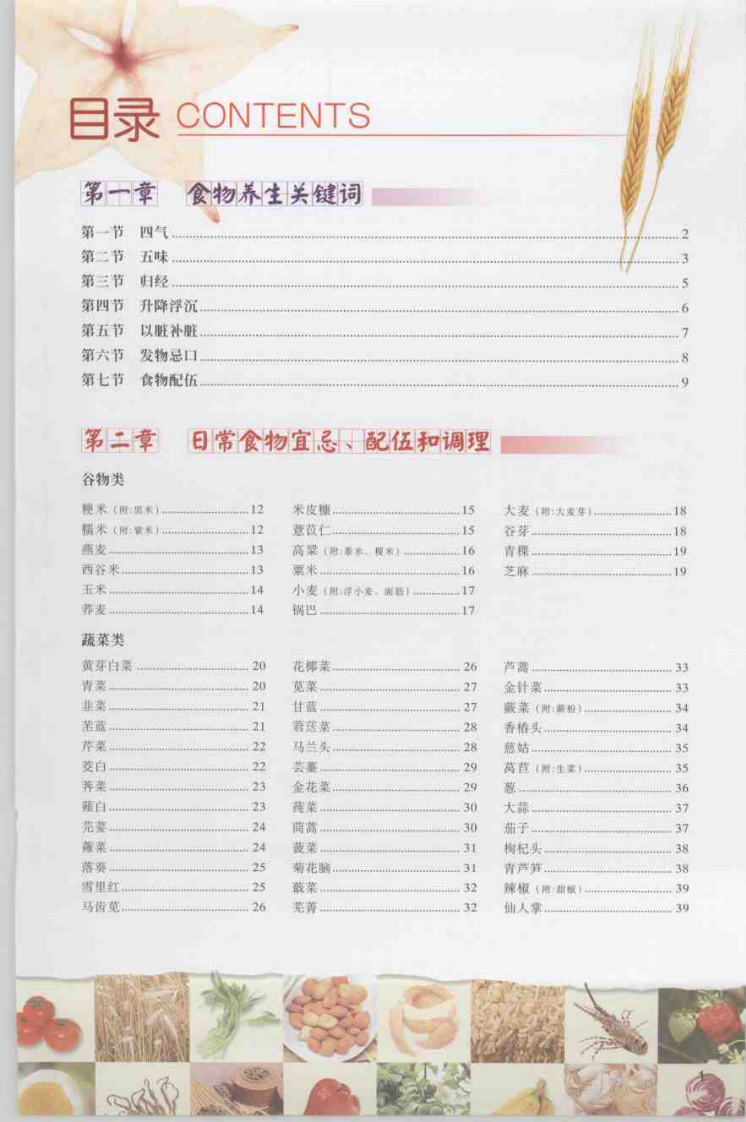 目录 CONTENTS
第一章 食物养生关键词
第一节 四气 2
第二节 五味 3
第三节 归经 5
第四节 升降浮沉 6
第五节 以脏补脏 7
第六节 发物忌口 8
第七节 食物配伍 9
第二章 日常食物宜忌、配伍和调理
谷物类
粳米（附:黑米） 12
糯米（附:紫米） 12
燕麦 13
西谷米 13
玉米 14
荞麦 14
米皮糠 15
薏苡仁 15
高粱（附:黍米、稷米） 16
粟米 16
小麦（附:浮小麦、面筋） 17
锅巴 17
大麦（附:大麦芽） 18
谷芽 18
青稞 19
芝麻 19
蔬菜类
黄芽白菜 20
青菜 20
韭菜 21
苤蓝 21
芹菜 22
茭白 22
荠菜 23
薤白 23
芫荽 24
蕹菜 24
落葵 25
雪里红 25
马齿苋 26
花椰菜 26
苋菜 27
甘蓝 27
莙荙菜 28
马兰头 28
芸薹 29
金花菜 29
莼菜 30
茼蒿 30
菠菜 31
菊花脑 31
蕺菜 32
芜菁 32
芦蒿 33
金针菜 33
蕨菜（附:蕨粉） 34
香椿头 34
慈姑 35
莴苣（附:生菜） 35
葱 36
大蒜 37
茄子 37
枸杞头 38
青芦笋 38
辣椒（附:甜椒） 39
仙人掌 39
1